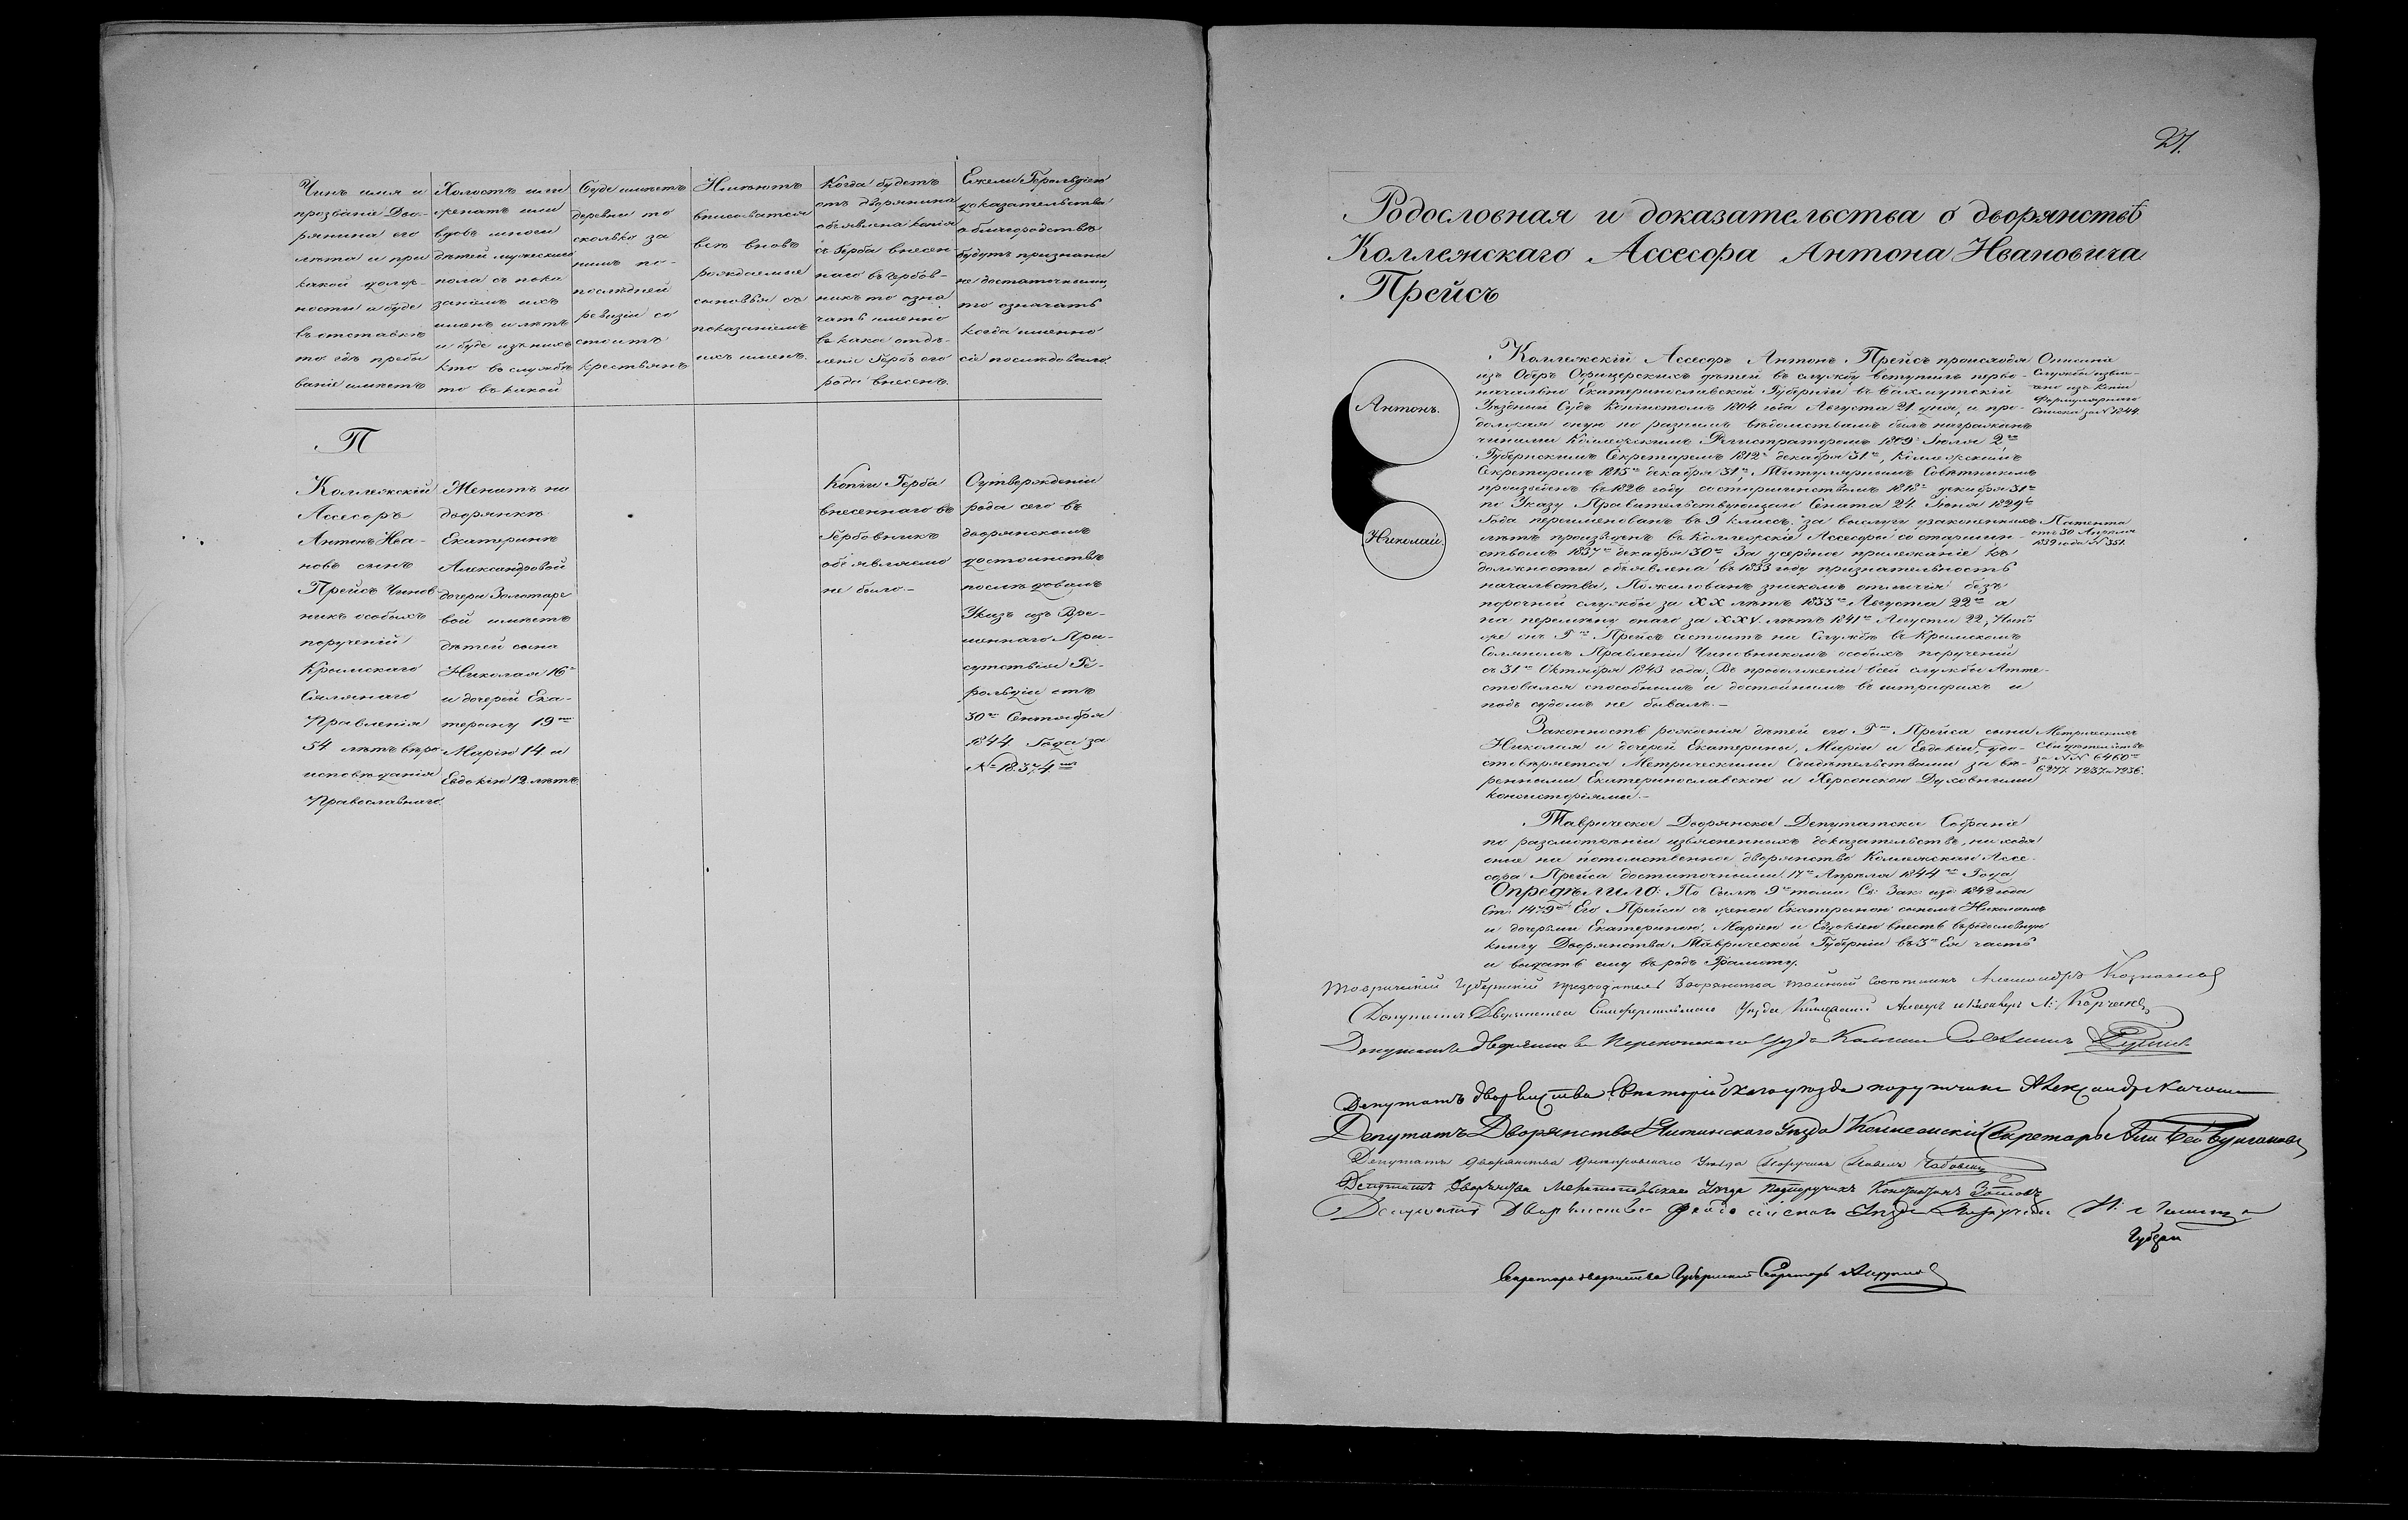 Чинъ имя и
прозваніе Дво-
рянина его
лѣта и при
какой долж-
ности и буде
въ отставкѣ
то гдѣ пребы
ваніе имѣетъ
Холостъ или
женатъ или
вдовъ много
дѣтей мужескаго
пола съ пока
заніемъ ихъ
именъ и лѣтъ
и буде изъ нихъ
кто въ службѣ
то въ какой
Буде имѣетъ
деревни то
сколько за
нимъ по-
послѣдней
ревизіи со
стоитъ
крестьянъ
Имѣютъ
вписоватся
всѣ вновь
рождаемые
сыновья съ
показаніемъ
ихъ именъ.
Когда будетъ
отъ дворянина
объявлена копія
съ Герба внесен-
наго въ гербов-
никъ то озна
чать именно
въ како отдѣ-
леніе Гербъ его
рода внесенъ.
Ежели Герольдіею
доказательства
о благородствѣ
будутъ признаны
не достаточными,
то означать
когда именно
сіе послѣдовало.
П
Коллежскій
Ассесоръ
Антонъ Ива-
новъ сынъ
Прейсъ Чинов
никъ особыхъ
порученій
Крымскаго
Солянаго
Правленія
54 лѣтъ вѣро
исповѣданія
Православнаго.
Женатъ на
дворянкѣ
Екатеринѣ
Александровой
дочери Золотаре
вой имѣетъ
дѣтей сына
Николая 16
и дочерей Ека-
терину 19
Марію 14 и
Евдокію 12 лѣтъ.
Копіи Герба
внесеннаго въ
Гербовникъ
объявляемо
не было-
О утвержденіи
рода сего въ
дворянскомъ
достоинствѣ
послѣдовалъ
Указъ изъ Вре-
меннаго При-
сутствія Ге-
рольдіи отъ
30 Сентября
1844 Года за
№ 18374
27.
Родословная и доказательства о дворянствѣ
Коллежскаго Ассесора Антона Ивановича
Прейсъ
Антонъ.
Николай.
Коллежскій Ассесоръ Антонъ Прейсъ происходя
изъ Оберъ Офицерскихъ дѣтей въ службу вступилъ перво-
начально Екатеринославской Губерніи въ Бахмутскій
Уѣздный Судъ Копіистомъ 1804 года Августа 21 дня, и про-
должая оную по разнымъ вѣдомствамъ былъ награжденъ
чинами Коллежскимъ Регистраторомъ 1809 Іюля 2
Губернскимъ Секретаремъ 1812 декабря 31, Коллежскимъ
Секретаремъ 1815 декабря 31, Титулярнымъ Совѣтникомъ
произведенъ въ 1826 году со старшинствомъ 1818 декабря 31
по Указу Правительствующаго Сената 24 Іюня 1829
Года переименованъ въ 9 классъ, за выслугу узаконенныхъ
лѣтъ произведенъ въ Коллежскіе Ассесоры со старшин-
ствомъ 1837 декабря 30 За усердное прилежаніе къ
должности объявлена въ 1833 году признательность
начальства, Пожалованъ знакомъ отличія безъ
порочной службы за XX лѣтъ 1833 Августа 22 а
на перемѣну онаго за XXV лѣтъ 1841 Августа 22, Нынѣ
же онъ Г Прейсъ состоитъ на Службѣ въ Крымскомъ
Соляномъ Правленіи Чиновникомъ особыхъ порученій
съ 31 Октября 1843 года, Въ продолженіи всей службы Атте-
стовался способнымъ и достойнымъ въ штрафахъ и
подъ судомъ не бывалъ.-
Описаніе
Службы извле-
чено изъ Копіи
Формулярнаго
Списка за № 1844.
Патента
отъ 30 Апрѣля
1839 года № 351.
Законность рожденія дѣтей его Г Прейса сына
Николая и дочерей Екатерины, Маріи и Евдокіи, удо-
стовѣряется Метрическими Свидѣтельствами за вѣ-
ренными Екатеринославскою и Херсонскою Духовными
Консисторіями.-
Метрическихъ
Свидѣтельствъ
за №№ 6460
6277. 7237 и 7236.
Таврическое Дворянское Депутатское Собраніе
по разсмотрѣніи изъясненныхъ доказательствъ, находя
оные на потомственное дворянство Коллежскаго Ассе-
сора Прейса достаточными. 17 Апрѣля 1844 Года
Опредѣлило: По Силѣ 9 тома Св: Зак: изд: 1842 года
Ст: 1479 Его Прейса съ женою Екатериною сыномъ Николаемъ
и дочерьми Екатериною, Маріею и Евдокіею внесть въ родословную
книгу Дворянства Таврической Губерніи въ 3 Ея часть
и выдать ему въ родъ Грамоту.
Таврическій Губернскій предводитель Дворянства тайный Совѣтникъ Александръ Казначеевъ
Депутатъ Дворянства Симферопольскаго Уѣзда Коллежскій Ассесоръ и Кавалеръ
Депутатъ дворянства Перекопскаго уѣзда
Депутатъ дворянства Евпаторійскаго уѣзда поручикъ Александръ
Депутатъ Дворянства Ялтинскаго Уѣзда Коллежскій Секретарь
Депутатъ дворянства Днѣпровскаго Уѣзда Поручикъ Павелъ
Депутатъ Дворянства Мелитопольскаго Уѣзда Подпоручикъ Константинъ
Депутатъ Дворянства Феодосійскаго Уѣзда
Секретарь дворянства Губернскій Секретарь